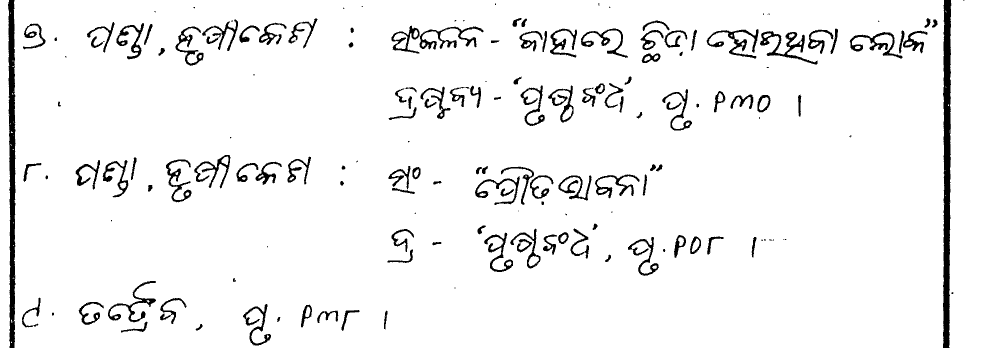 ୭. ପଣ୍ଡା, ହୃଷୀକେଶ : ସଂକଳନ - “ବାହାରେ ଛିଡ଼ା ହୋଇଥିବା ଲୋକ”
ଦ୍ରଷ୍ଟବ୍ୟ - ‘ପୃଷ୍ଠବଂଧ’, ପୃ. ୧୩୦ ।
୮. ପଣ୍ଡା, ହୃଷୀକେଶ : ସଂ - “ପ୍ରୌଢ଼ ଭାବନା”
ଦ୍ର - ‘ପୃଷ୍ଠବଂଧ’, ପୃ. ୧୦୮ ।
୯. ତତ୍ରୈବ, ପୃ. ୧୩୮ ।